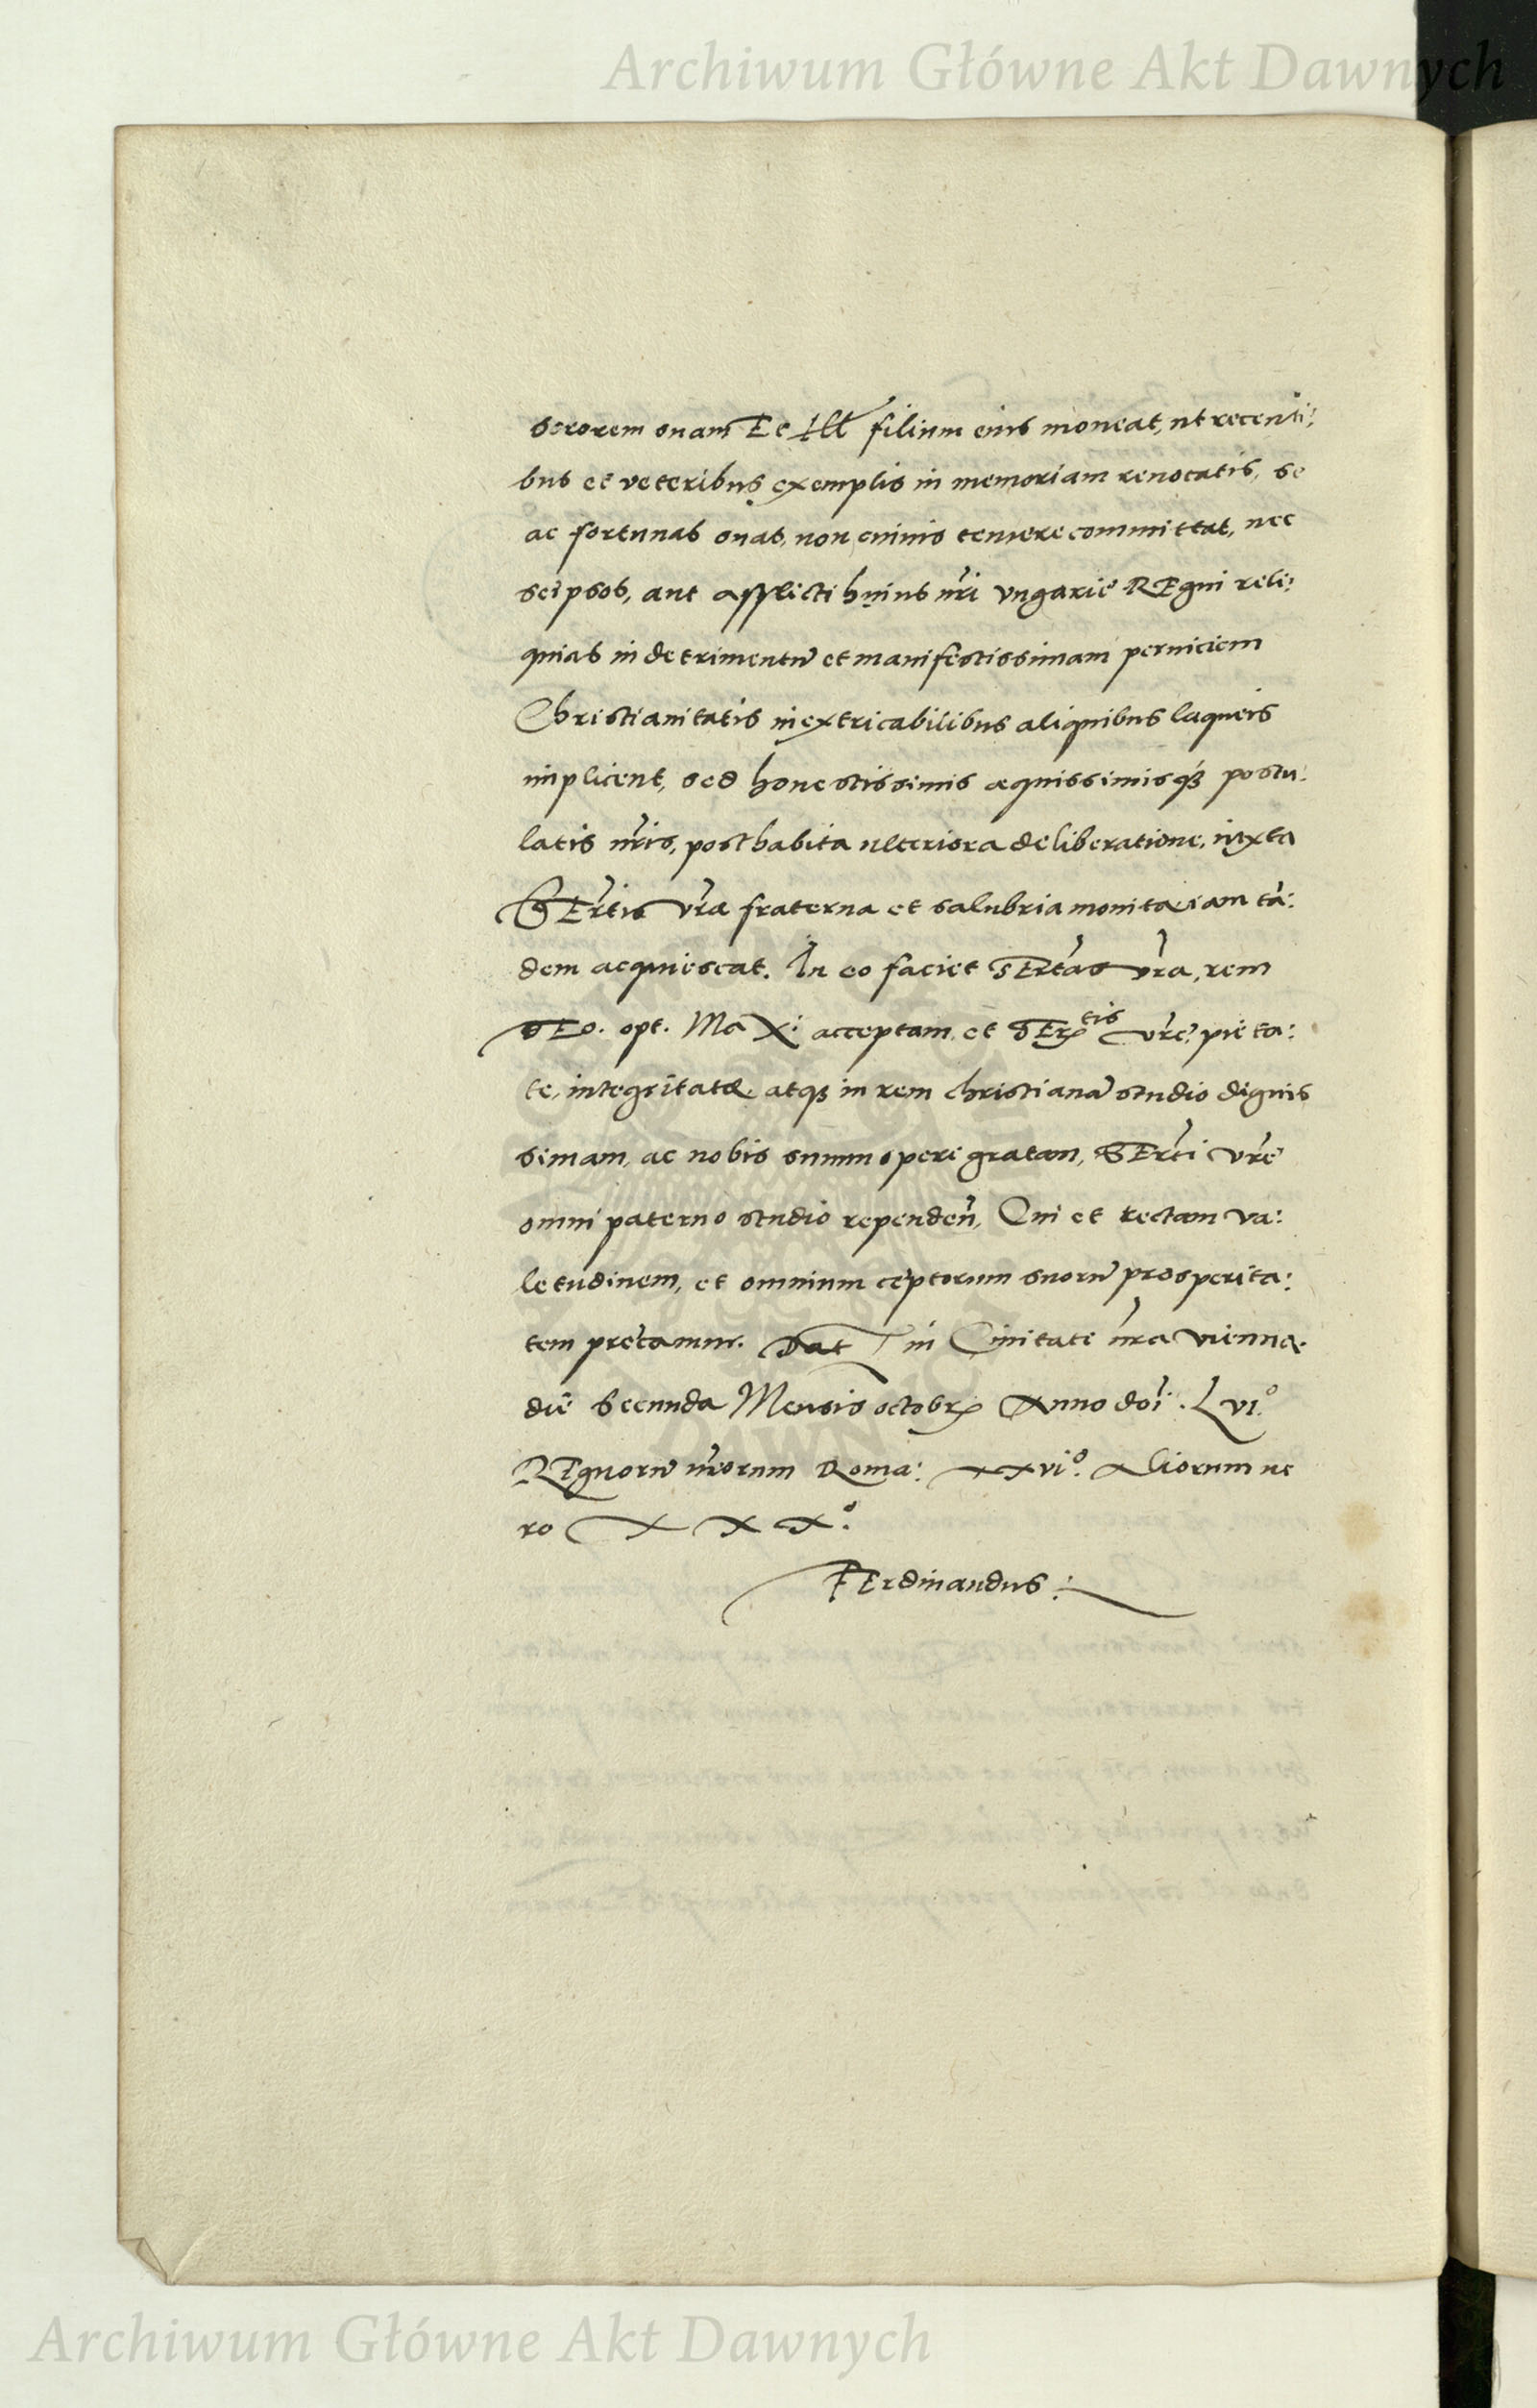 Archiwum Główne Akt Dawnych
sororem suam Et Ill filium eius moneat, ut recenti:
bus et veteribus exemplis in memoriam revocatis, se
ac fortunas suas, non nimis temere committat, nec
seipsos, aut afflicti huius nri Vngarie REgni reli:
quias in detrimentū et manifestissimam perniciem
Christianitatis inextricabilibus aliquibus laqueis
implicent, sed honestissimis aequissimisq3 postu:
latis nris, posthabita ulteriora deliberatione, iuxta
SErtis vra fraterna et salubria monita iam tā:
dem acquiescat. In eo faciet SErtas vra, rem
DEO. opt. MaX: acceptam, et SEr tis vre pieta:
te, integritate, atq3 in rem christianā studio dignis
simam, ac nobis summopere gratam, SErti vre
omni paterno studio rependen, Cui et rectam va:
letudinem, et omnium ceptorum suorū prosperita:
tem precamur. Dat in Ciuitate nra Vienna.
die Secunda Mensis octobr Anno doi. Lvi.º
REgnorū nrorum Roma: xxviº. Aliorum ve
ro X X Xº.
FErdinandus:
Archiwum Główne Akt Dawnych